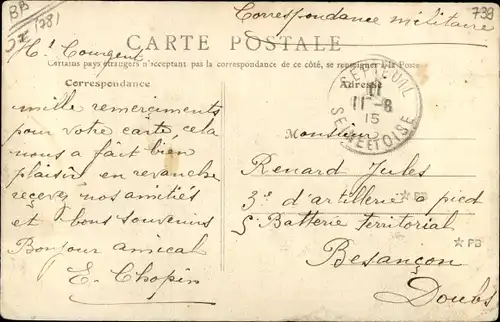 BB
(281
738
Correspondance militaire
CARTE POSTALE
Certains pays étrangers n'acceptant pas la correspondance de ce côté, se renseigner à la Poste
Correspondance
Adresse
SEPTEUIL
11-8
15
SEINE ET OISE
mille remerciments
pour votre carte, cela
nous a fait bien
plaisir en revanche
reçevez nos amitiés
et bons souvenirs
Bonjour amical
E. Chopin
Monsieur
Renard Jules
3e d'artillerie à pied
5e Batterie territorial
Besançon
Doubs
PB
PB